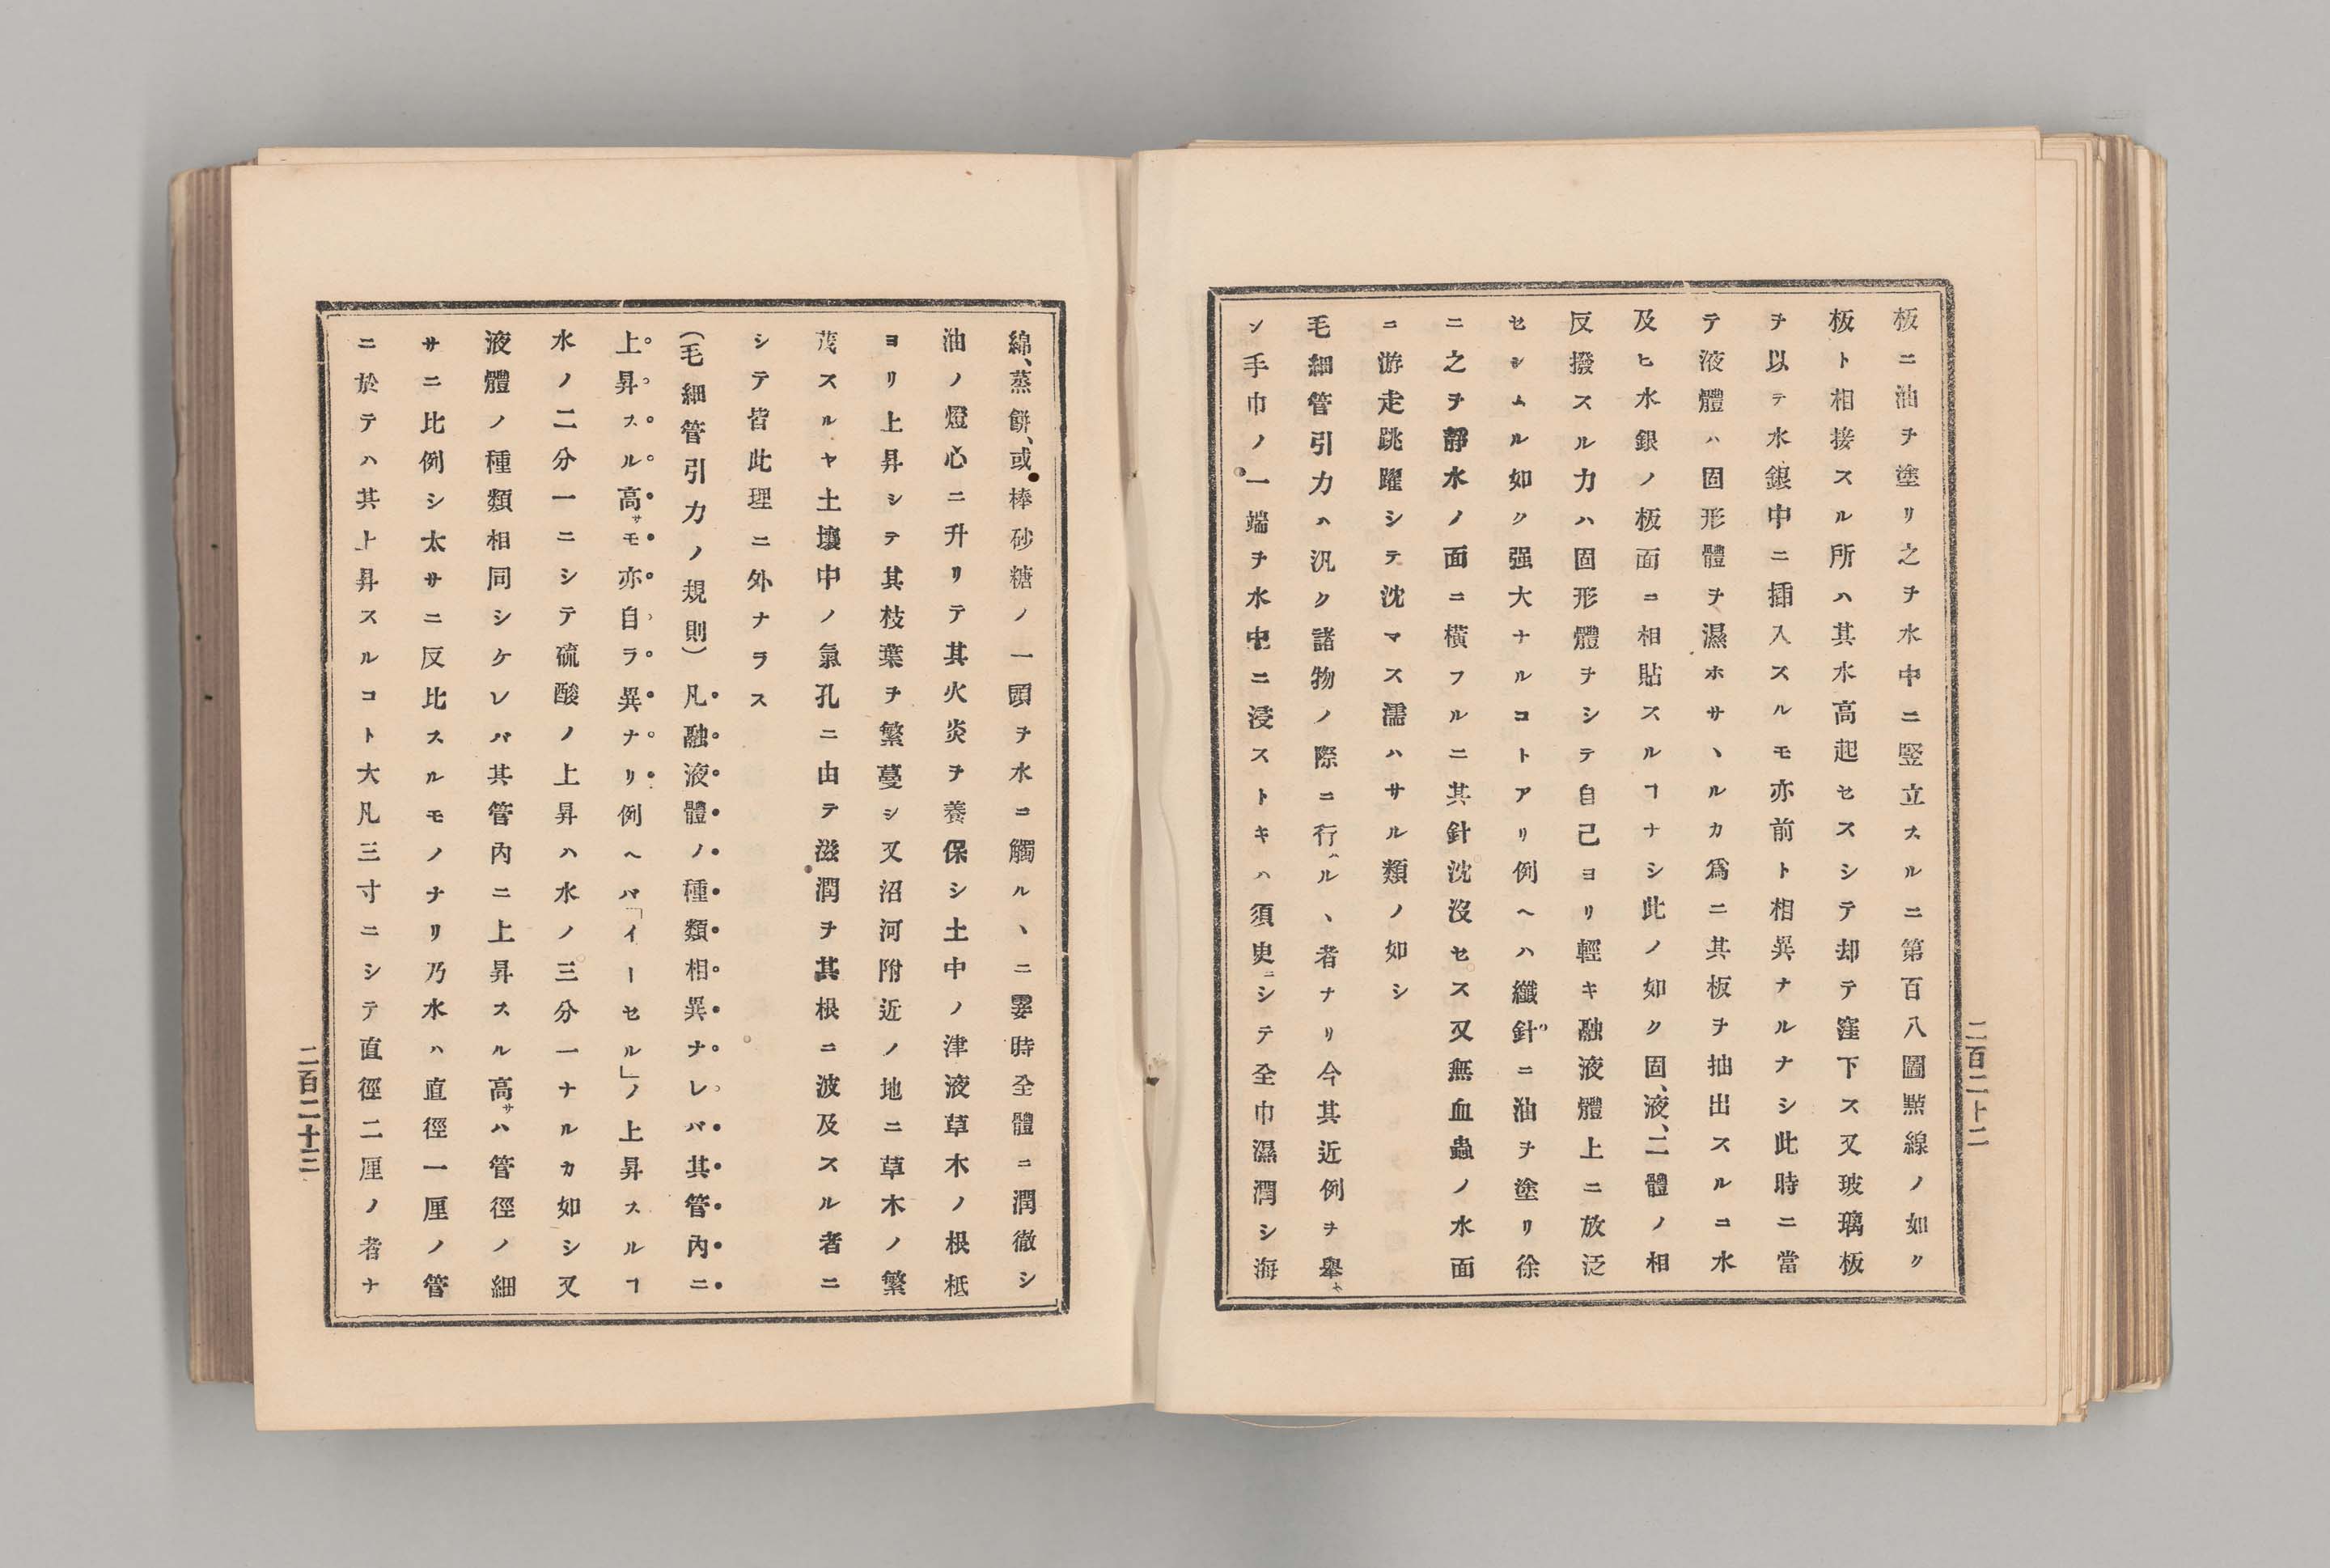 板ニ油ヲ塗リ之ヲ水中ニ竪立スルニ第百八圖㸃線ノ如ク
板ト相接スル所ハ其水高起セスシテ却テ窪下ス又玻璃板
ヲ以テ水銀中ニ揷入スルモ亦前ト相異ナルナシ此時ニ當
テ液體ハ固形體ヲ濕ホサヽルカ爲ニ其板ヲ抽出スルニ水
及ヒ水銀ノ板面ニ相貼スルヿナシ此ノ如ク固、液、二體ノ相
反撥スル力ハ固形體ヲシテ自己ヨリ輕キ融液體上ニ放泛
セシムル如ク强大ナルコトアリ例ヘハ纖針ニ油ヲ塗リ徐
ニ之ヲ靜水ノ面ニ橫フルニ其針沈沒セス又無血蟲ノ水面
ニ游走跳躍シテ沈マス濡ハサル類ノ如シ
毛細管引力ハ汎ク諸物ノ際ニ行ハルヽ者ナリ今其近例ヲ擧
ン手巾ノ一端ヲ水中ニ浸ストキハ須臾ニシテ全巾濕潤シ海
二百二十二
綿、蒸餅、或棒砂糖ノ一頭ヲ水ニ觸ルヽニ霎時全體ニ潤徹シ
油ノ燈心ニ升リテ其火炎ヲ養保シ土中ノ津液草木ノ根柢
ヨリ上昇シテ其枝葉ヲ繁蔓シ又沼河附近ノ地ニ草木ノ繁
茂スルヤ土壤中ノ氣孔ニ由テ滋潤ヲ其根ニ波及スル者ニ
シテ皆此理ニ外ナラス
(毛細管引力ノ規則)凡融液體ノ種類相異ナレバ其管內ニ
上昇スル高サモ亦自ラ異ナリ例ヘバ「イーセル」ノ上昇スルヿ
水ノ二分一ニシテ硫酸ノ上昇ハ水ノ三分一ナルカ如シ又
液體ノ種類相同シケレバ其管內ニ上昇スル高サハ管徑ノ細
サニ比例シ太サニ反比スルモノナリ乃水ハ直徑一厘ノ管
ニ於テハ其上昇スルコト大凡三寸ニシテ直徑二厘ノ者ナ
二百二十三